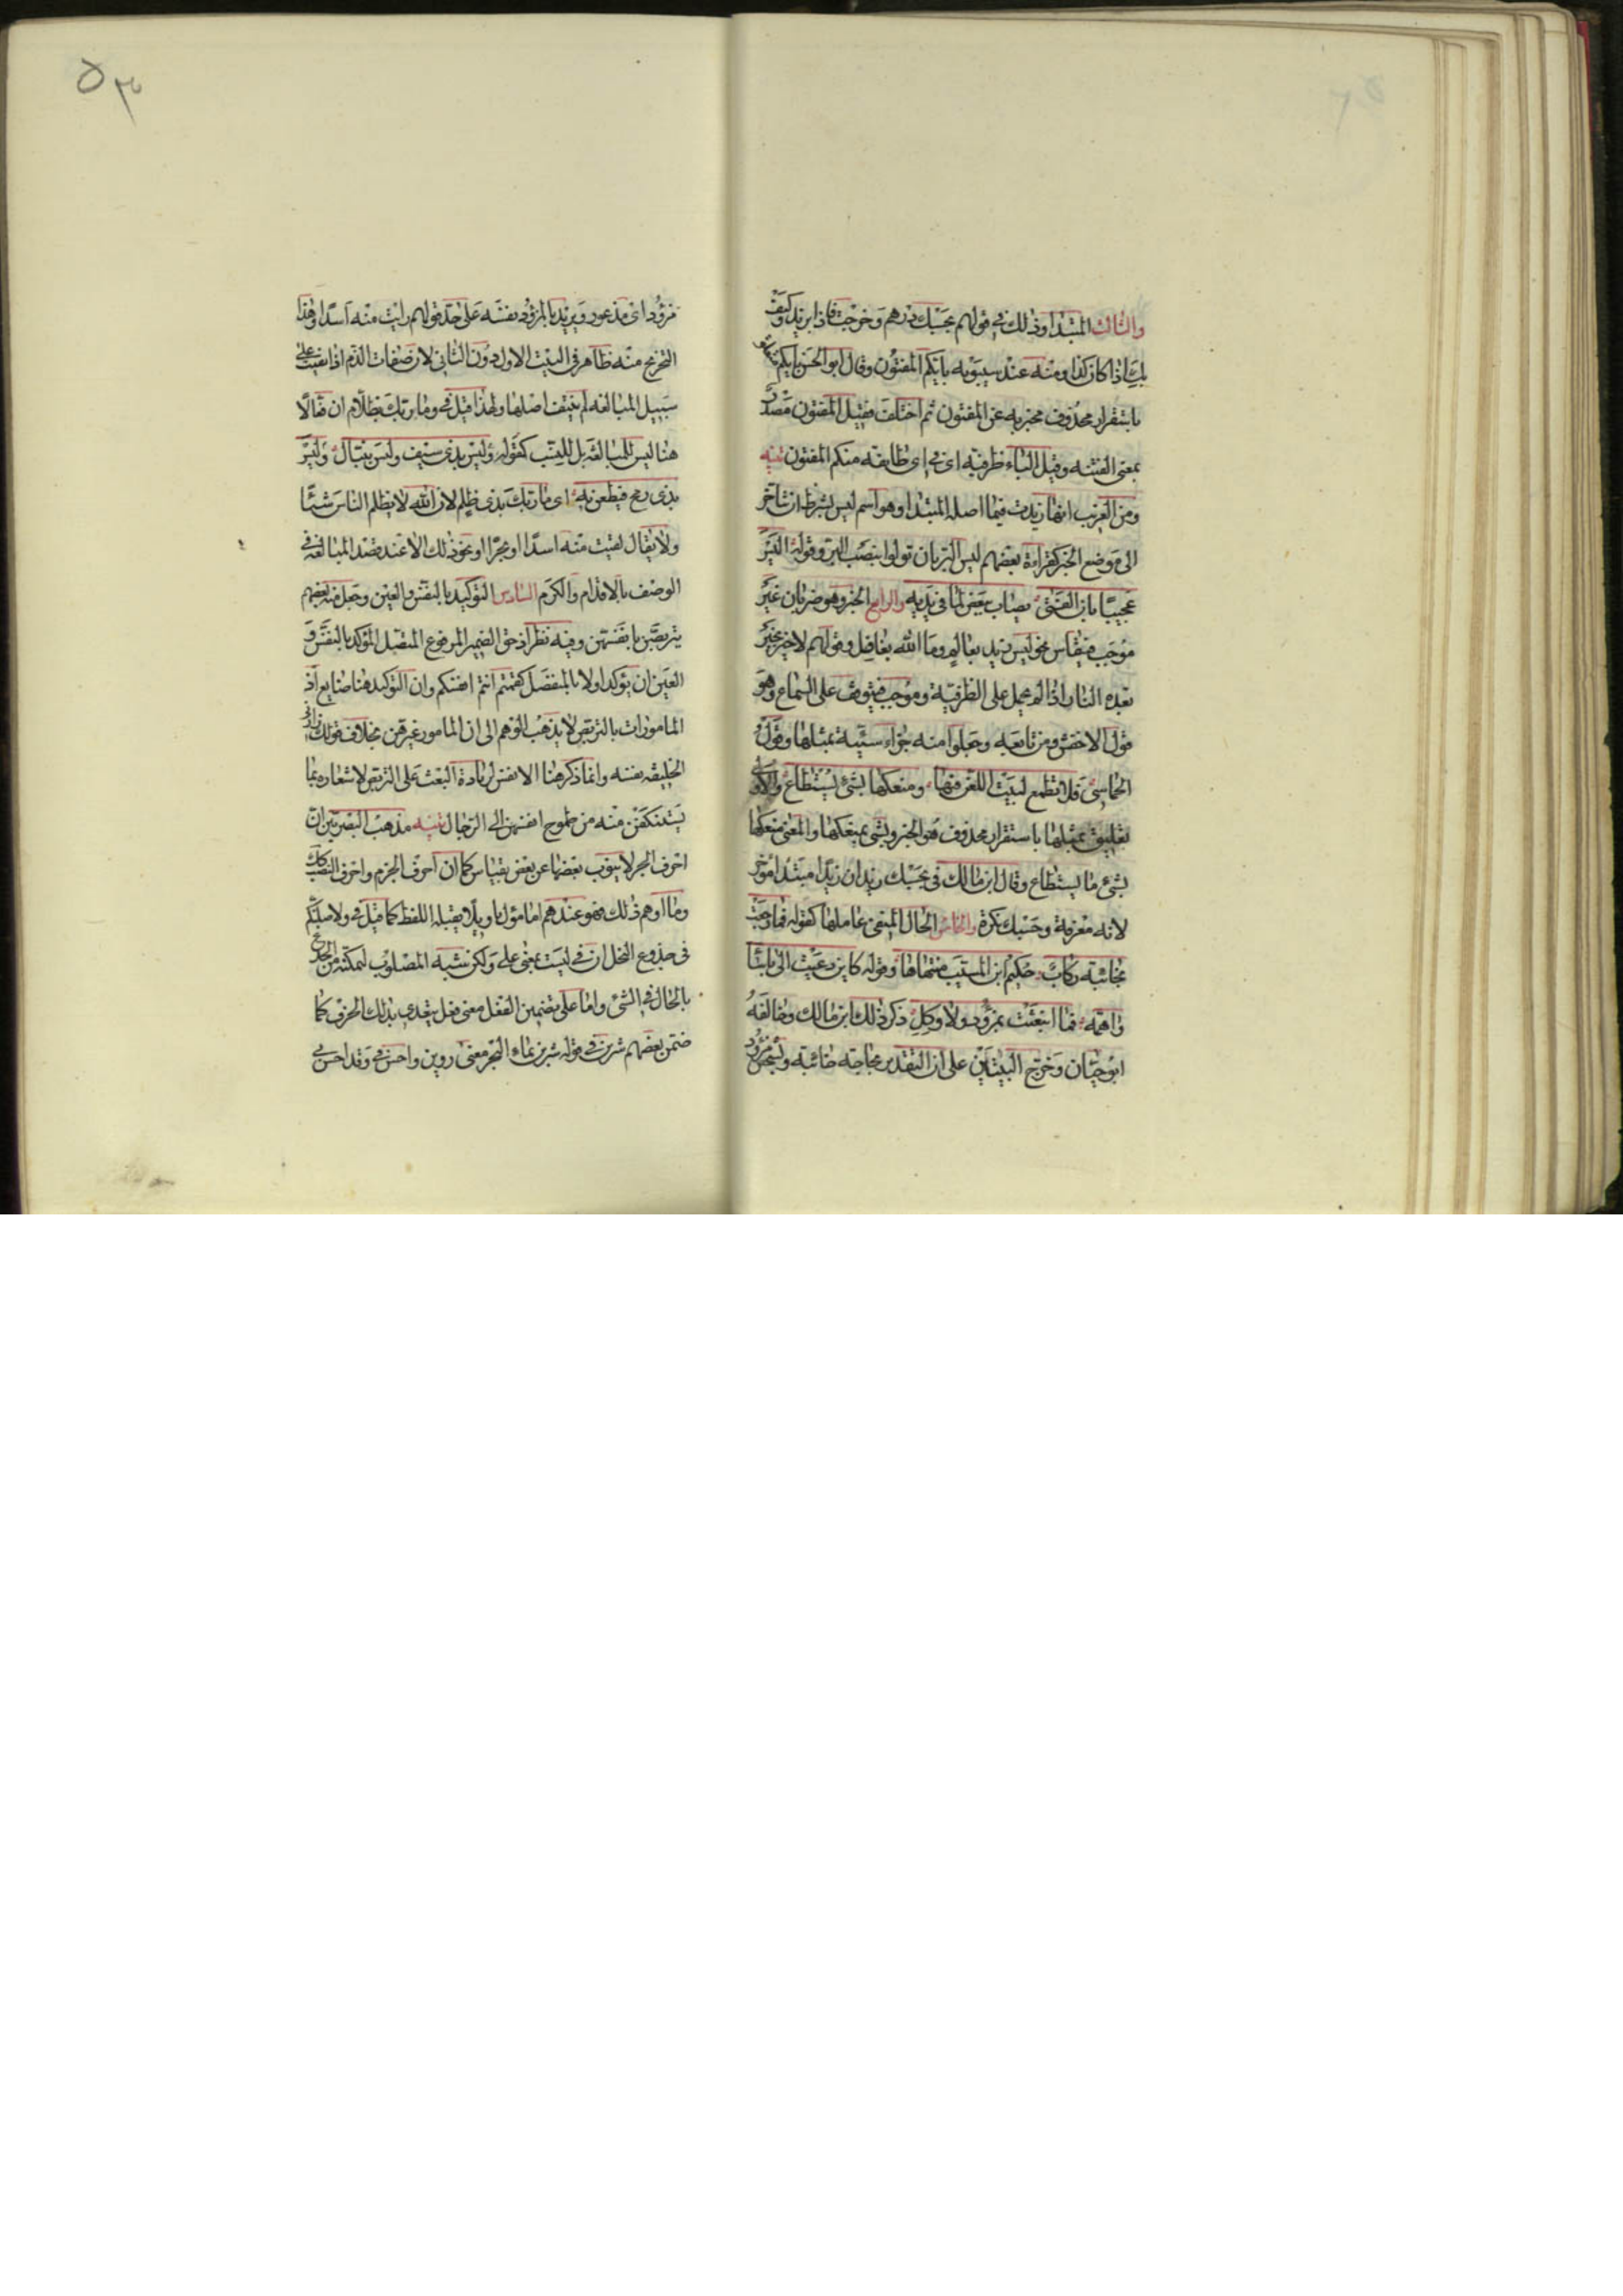 والثالث المبتدا وذلك في قولهم بحسبك درهم وخرجت فاذا بزيد وكيف
بك اذا كان كذا ومنه عند سيبويه بايكم المفتون وقال ابو الحسن بايكم متعلق
باستقرار محذوف مخبر به عن المفتون ثم اختلف فقيل المفتون مصدر
بمعنى الفتنه وقيل الباء ظرفيه اى في اى طايفه منكم المفتون تنبيه
ومن الغريب انها زيدت فيما اصله المبتدا وهو اسم ليس بشرط ان يتاخر
الى موضع الخبر كقراءة بعضهم ليس البر بان تولوا بنصب البر وقوله اليس
عجيبا بان الفتى يصاب ببعض الذي في يديه والرابع الخبر وهو ضربان غير
موجب فينقاس نحو ليس زيد بقائم وما الله بغافل وقولهم لاخير بخير
بعده النار اذا لم يحمل على الظرفية وموجب فيتوقف على السماع وهو
قول الاخفش ومن تابعه وجعلوا منه جزاء سيئة بمثلها وقول
الحماسى فلا تطمع ابيت اللعن فيها ومنعكها بشئ يستطاع والاولى
تعليق بمثلها باستقرار محذوف هو الخبر وبشئ بمنعكها والمعنى منعكها
بشئ ما يستطاع وقال ابن مالك فى بحسبك زيد ان زيدا مبتدا مؤخر
لانه معرفة وحسبك نكرة والخامس الحال المنفى عاملها كقوله فما رجعت
بخائبة ركاب حكيم ابن المسيب منتهاها وقوله كاين دعيت الى باساء
داهمة فما انبعثت بمزؤد ولا وكل ذكر ذلك ابن مالك وخالفه
ابو حيان وخرج البيتين على ان التقدير بحاجة خائبة وبشخص مزؤد
مزؤد اى مذعور ويريد بالمزؤد نفسه على حد قولهم رايت منه اسدا وهذا
التخريج منه ظاهر في البيت الاول دون الثاني لان صفات الذم اذا نفيت على
سبيل المبالغه لم ينتف اصلها ولهذا قيل في وما ربك بظلام ان فعالا
هنا ليس للمبالغه بل للنسب كقوله وليس بذى سيف وليس بنبال وليس
بذى رمح فيطعن به اى ما ربك بذى ظلم لان الله لا يظلم الناس شيئا
ولا يقال لقيت منه اسدا او بحرا او نحو ذلك الا عند قصد المبالغه في
الوصف بالاقدام والكرم السادس التوكيد بالنفس والعين وجعل منه بعضهم
يتربصن بانفسهن وفيه نظر اذ حق الضمير المرفوع المتصل المؤكد بالنفس و
العين ان يؤكد اولا بالمنفصل كقمتم انتم انفسكم وان التوكيد هنا ضايع اذ
المامورات بالتربص لا يذهب الوهم الى ان المامور غيرهن بخلاف قولك زارنى
الخليفه نفسه وانما ذكر هنا الانفس لزيادة البعث على التربص لاشعاره بما
يستنكفن منه من طموح انفسهن الى الرجال تنبيه مذهب البصريين ان
احرف الجر لا ينوب بعضها عن بعض بقياس كما ان احرف الجزم واحرف النصب كذلك
وما اوهم ذلك فهو عندهم اما مؤول تاويلا يقبله اللفظ كما قيل في ولاصلبنكم
فى جذوع النخل ان في ليست بمعنى على ولكن شبه المصلوب لتمكنه من الجذع
بالحال في الشئ واما على تضمين الفعل معنى فعل يتعدى بذلك الحرف كما
ضمن بعضهم شربن في قوله شربن بماء البحر معنى روين واحسن في وقد احسن بى
٥٣